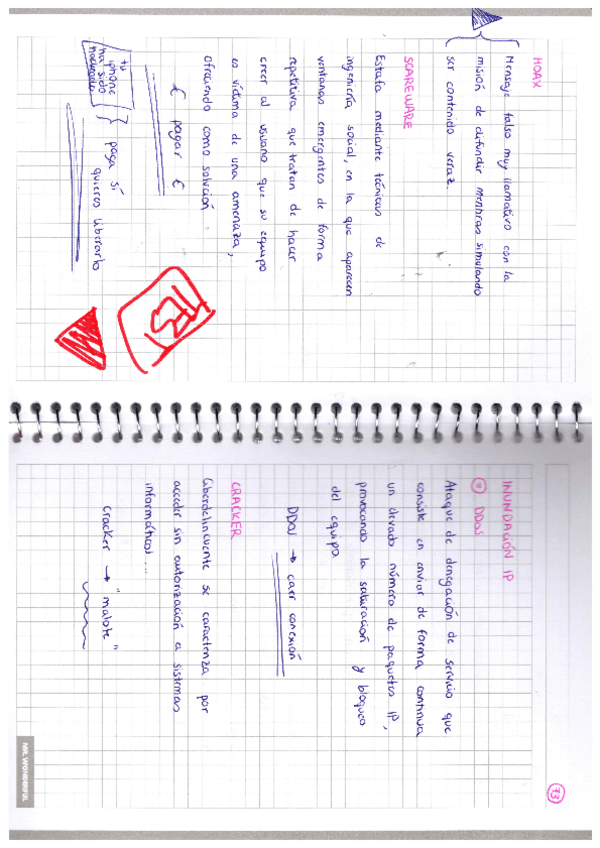 HOAX
Mensaje falso muy llamativo con la
misión de difundir mentiras simulando
ser contenido veraz.
SCAREWARE
Estafa mediante técnicas de
ingeniería social, en la que aparecen
ventanas emergentes de forma
repetitiva que tratan de hacer
creer al usuario que su equipo
es víctima de una amenaza,
ofreciendo como solución
€ pagar €
tu
iphone
ha sido
hackeado
paga si
quieres liberarlo
73
INUNDACIÓN IP
= DDoS
Ataque de denegación de servicio que
consiste en enviar de forma continua
un elevado número de paquetes IP,
provocando la saturación y bloqueo
del equipo.
DDoS → caer conexión
CRACKER
Ciberdelincuente se caracteriza por
acceder sin autorización a sistemas
informáticos ...
cracker → "malote"
MR. WONDERFUL